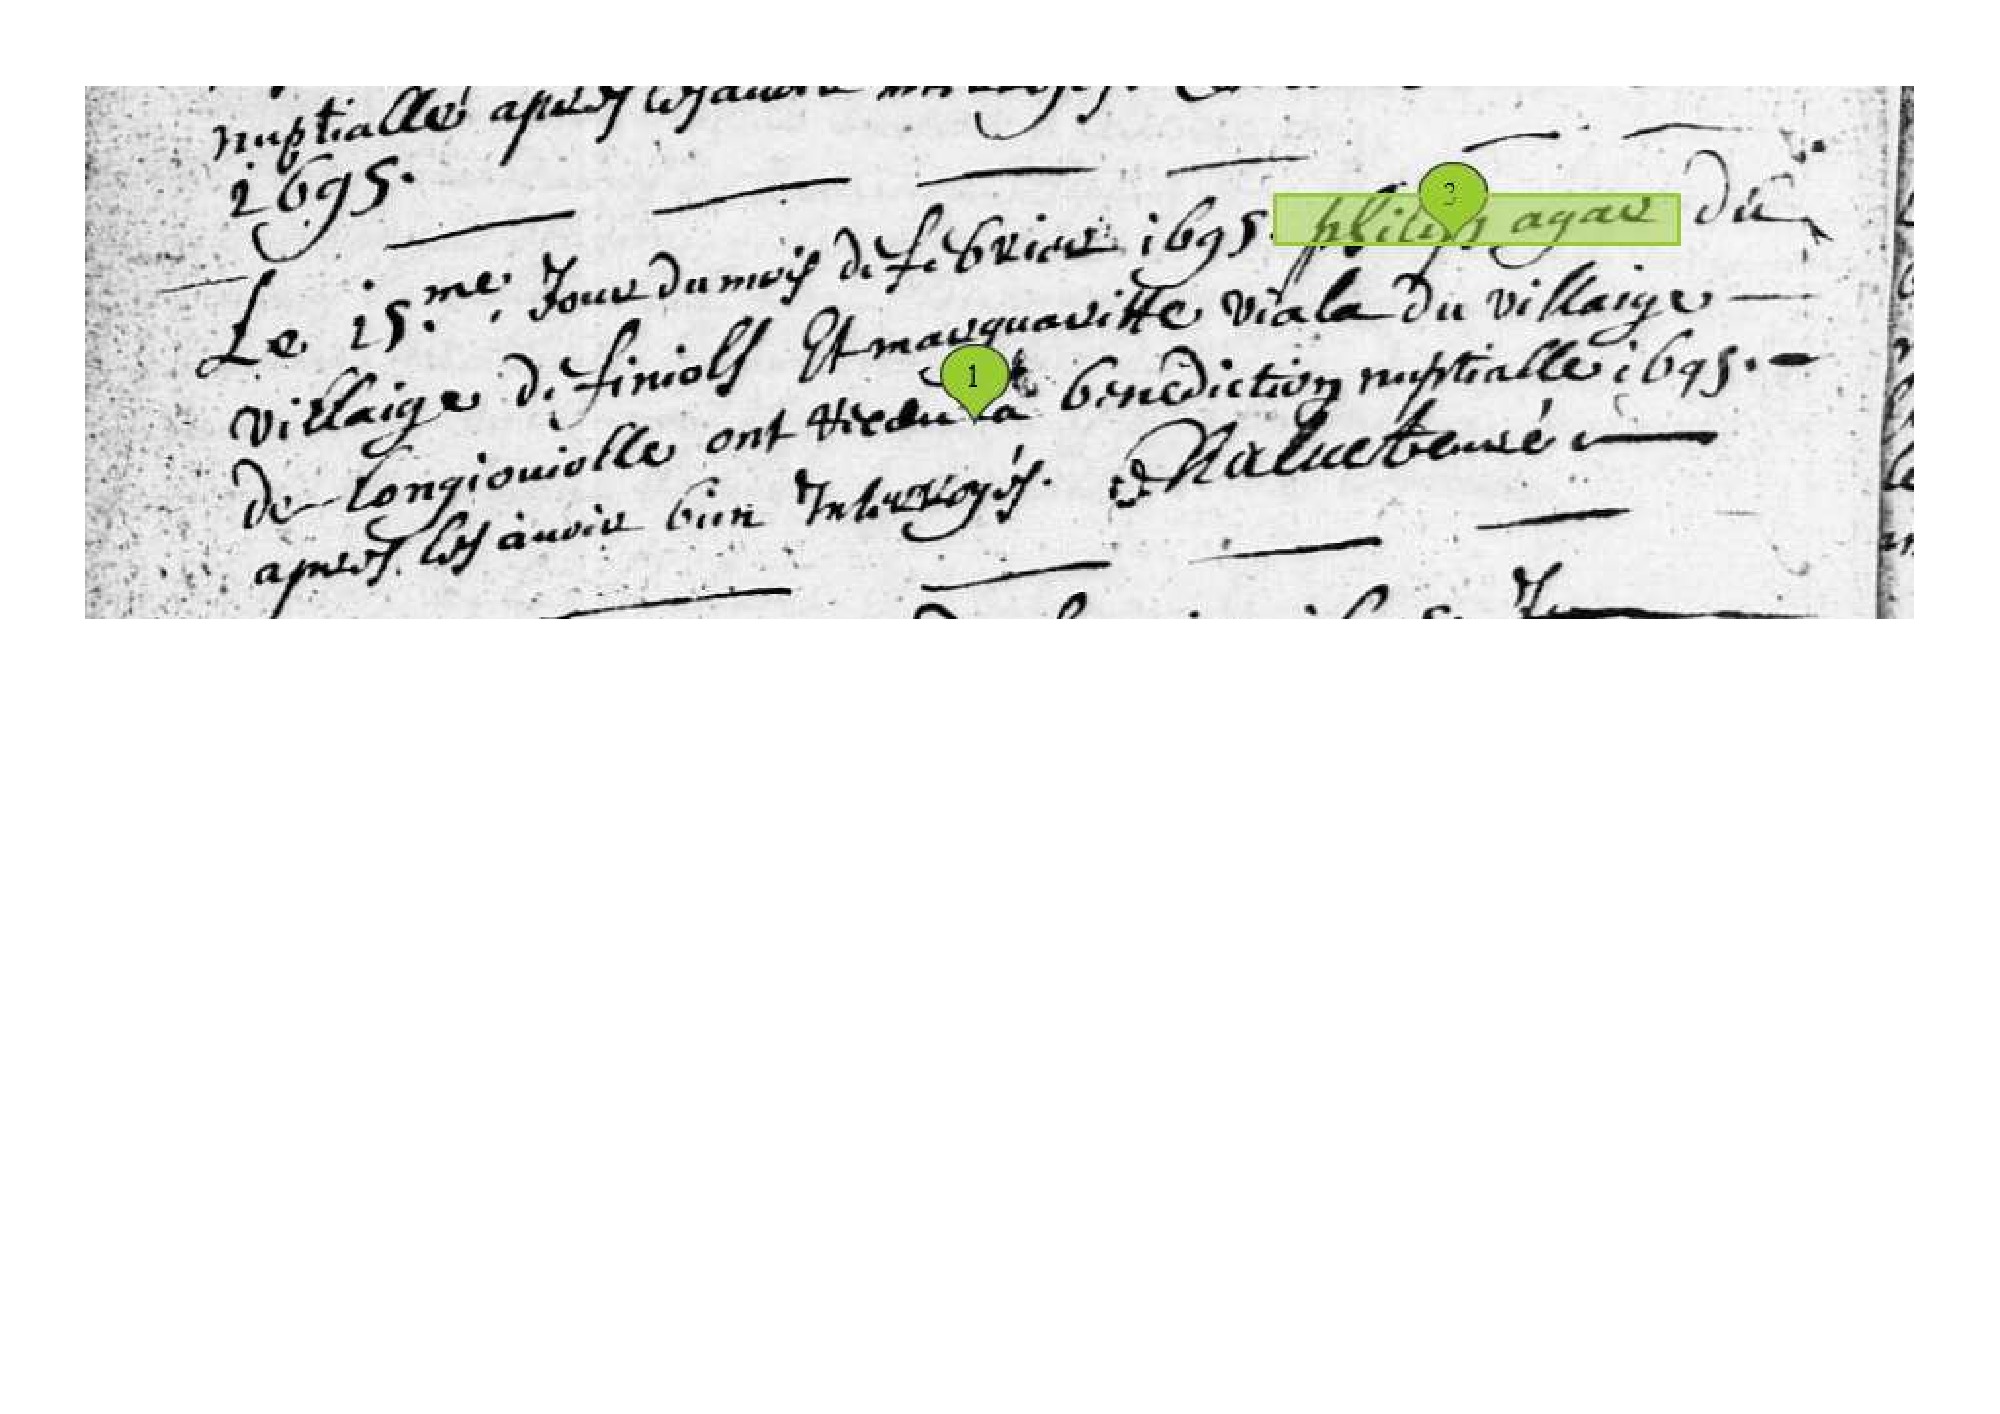 nuptialle apres les avoir
1695.
Le 15.me Jour du mois de febvrier 1695. agar du
villaige de finiols Et marguaritte viala du villaige
de longiouiolle ont la benediction nuptialle 1695.
apres les auoir bien Interrogés. curé
3
1